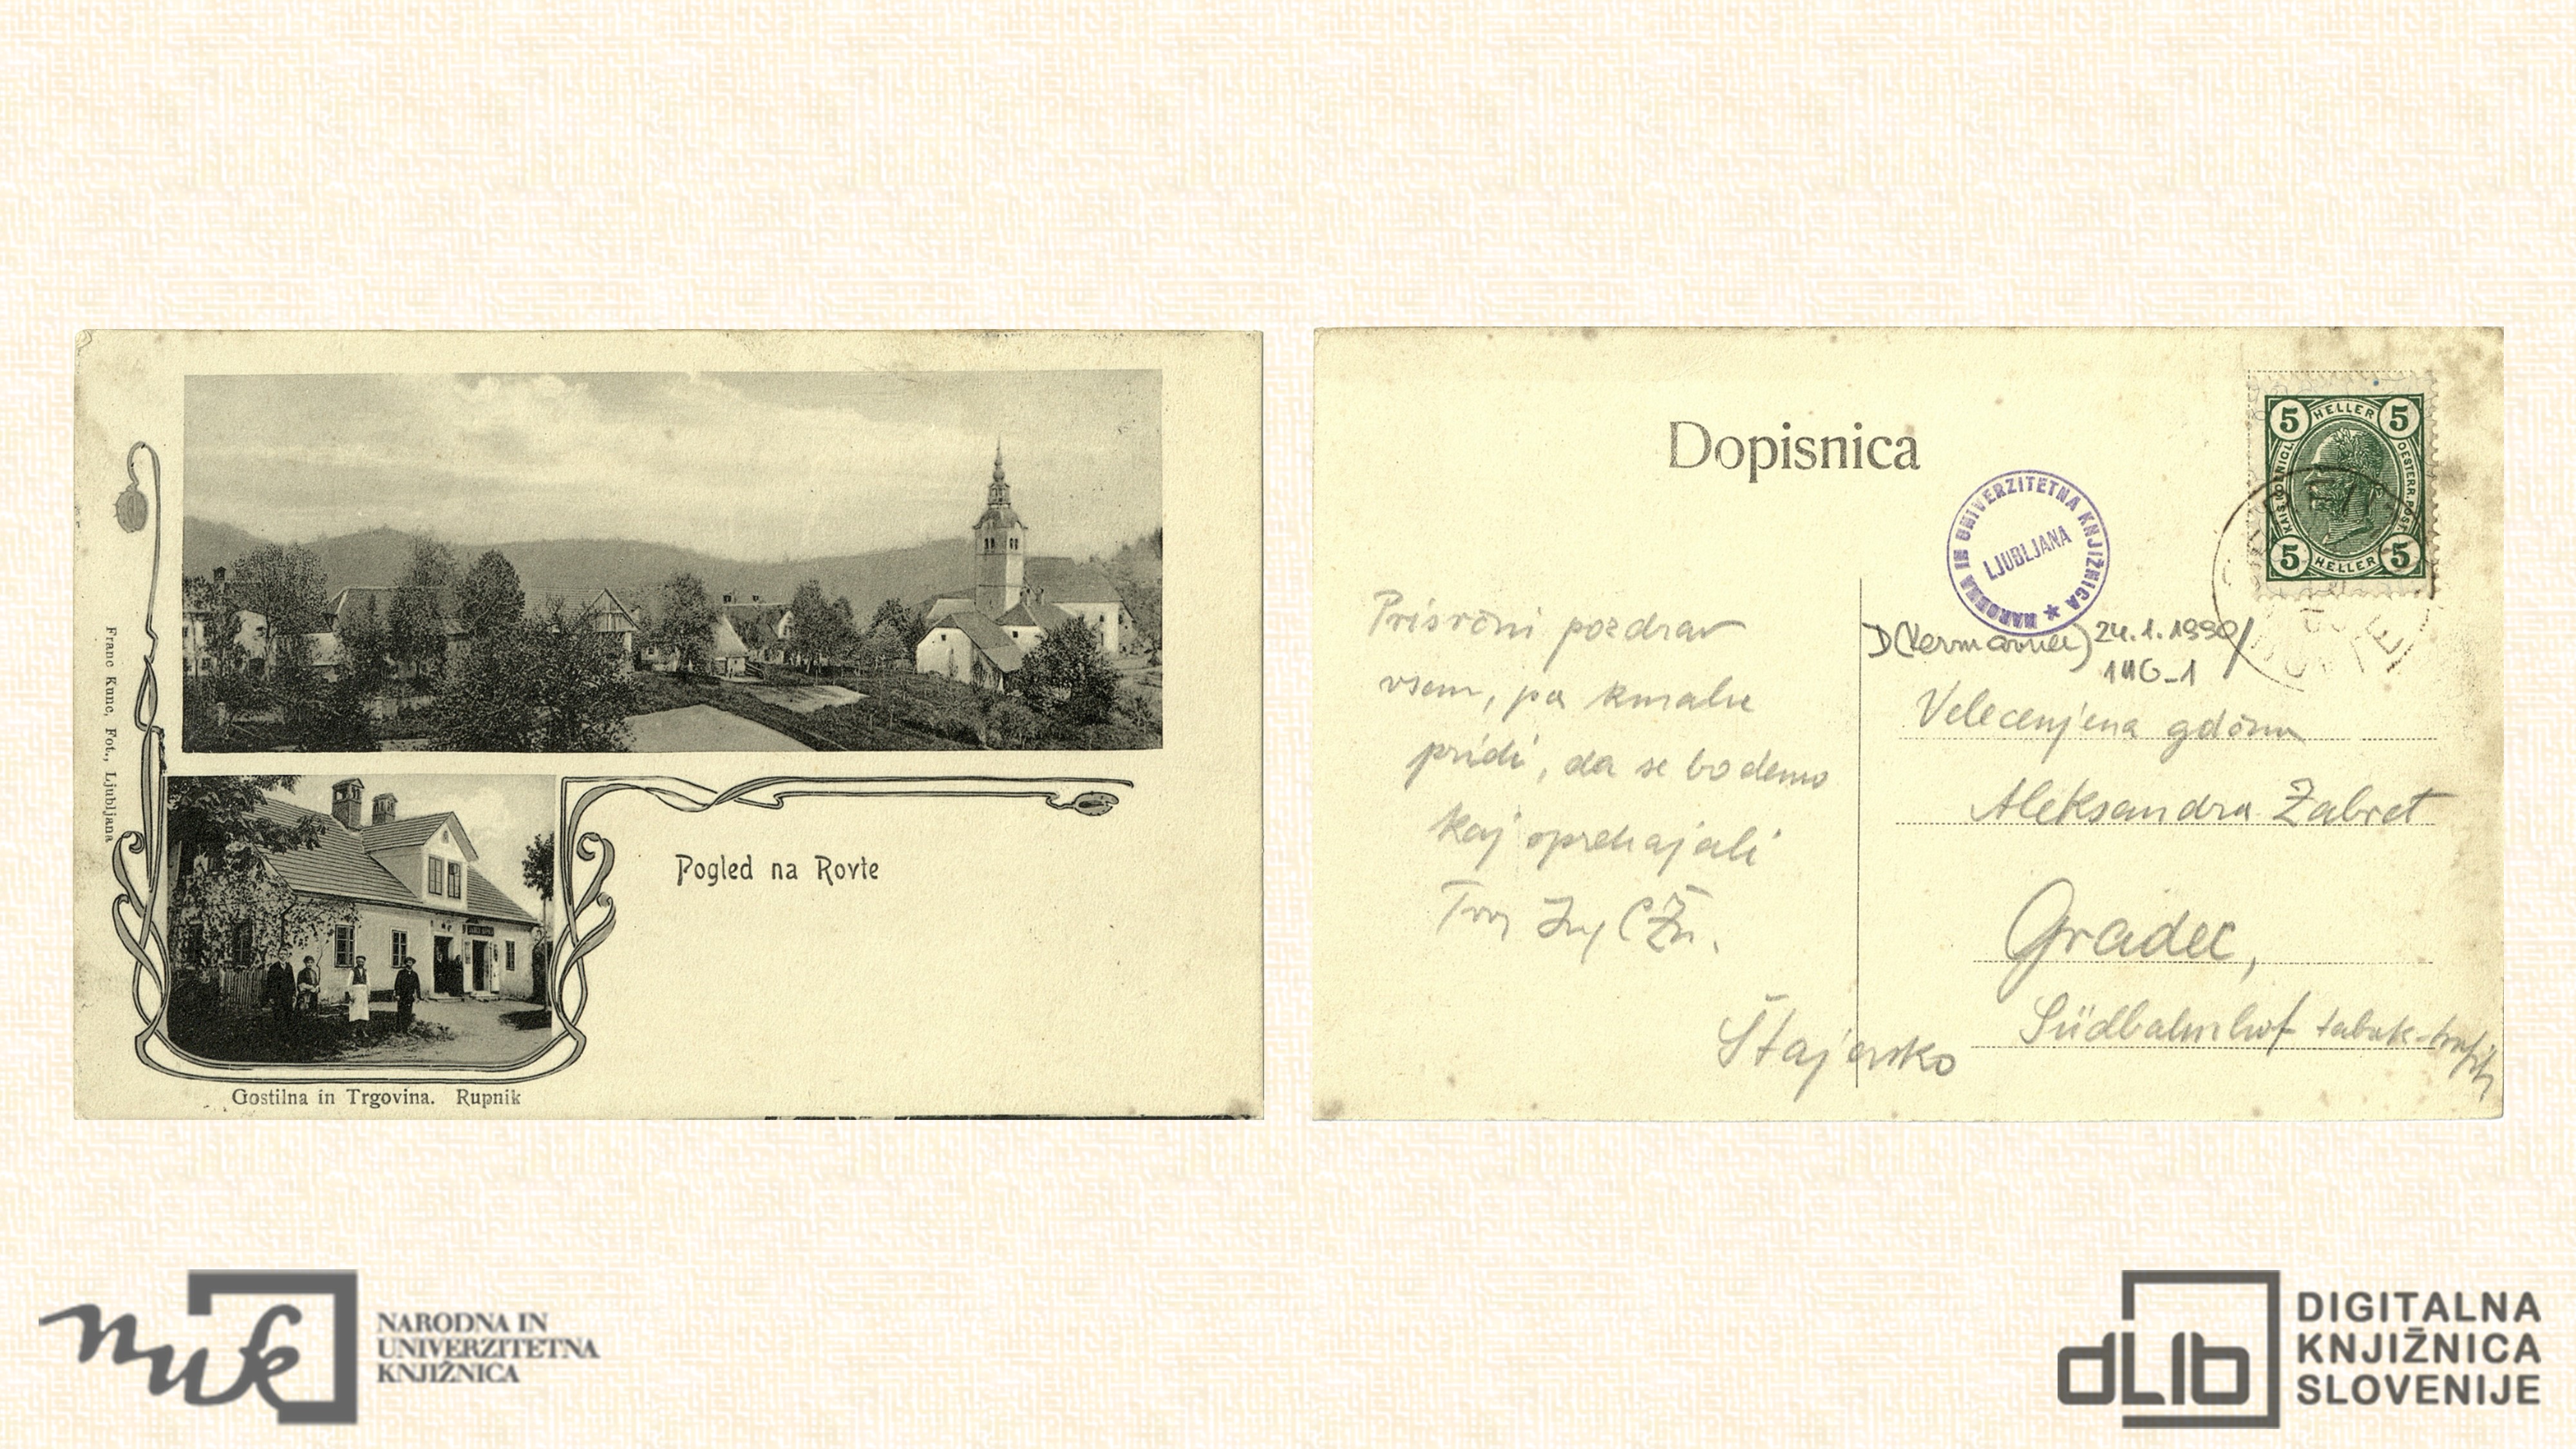 Franc Kunc, Fot., Ljubljana
Pogled na Rovte
Gostilna in Trgovina. Rupnik
Dopisnica
NARODNA IN UNIVERZITETNA KNJIŽNICA
LJUBLJANA
5 HELLER 5
KAIS. KOENIGL. OESTERR. POST.
5 HELLER 5
24.1.1990/
Prisrčni pozdrav
vsem, pa kmalu
pridi, da se bodemo
kaj sprehajali
Tvoj
Velecenjena gdčna
Aleksandra Zabret
Gradec,
Südbahnhof tabak-trafik
Štajersko
nuk
NARODNA IN
UNIVERZITETNA
KNJIŽNICA
dLib
DIGITALNA
KNJIŽNICA
SLOVENIJE